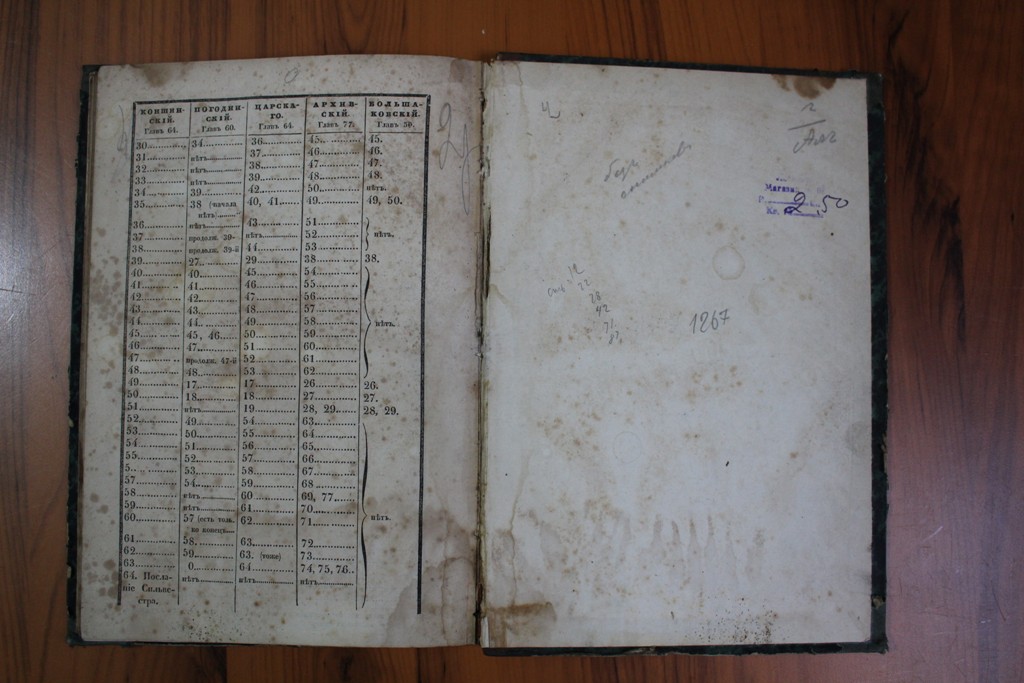 КОНШИН- ПОГОДИН- ЦАРСКА- АРХИВ- БОЛЬША-
СКІЙ. СКІЙ. ГО. СКІЙ. КОВСКІЙ.
Главъ 64. Главъ 60. Главъ 64. Главъ 77. Главъ 50.
30 34 36 45 45.
31 нѣтъ 37 46 46.
32 нѣтъ 38 47 47.
33 нѣтъ 39 48 48.
34 39 42 50 нѣтъ.
35 38 (начала 40, 41 49 49, 50.
нѣтъ
36 нѣтъ 43 51
37 продолж. 39- нѣтъ 52 нѣтъ.
38 продолж. 39-й 44 53
39 27 29 38 38.
40 40 45 54
41 41 46 55
42 42 47 56
43 43 48 57
44 44 49 58 нѣтъ.
45 45, 46 50 59
46 47 51 60
47 продолж. 47-й 52 61
48 48 53 62
49 17 17 26 26.
50 18 18 27 27.
51 нѣтъ 19 28, 29 28, 29.
52 49 54 63
53 50 55 64
54 51 56 65
55 52 57 66
5 53 58 67
57 54 59 68
58 нѣтъ 60 69, 77
59 нѣтъ 61 70
60 57 (есть толь- 62 71 нѣтъ.
ко конецъ
61 58. 63 72
62 59 63. (тоже) 73
63 0 64 74, 75, 76
64. Посла- нѣтъ нѣтъ нѣтъ
ніе Сильве-
стра.
безъ
Магазин
Р. 2,50
Кг.
12
22
28
42
71
1267